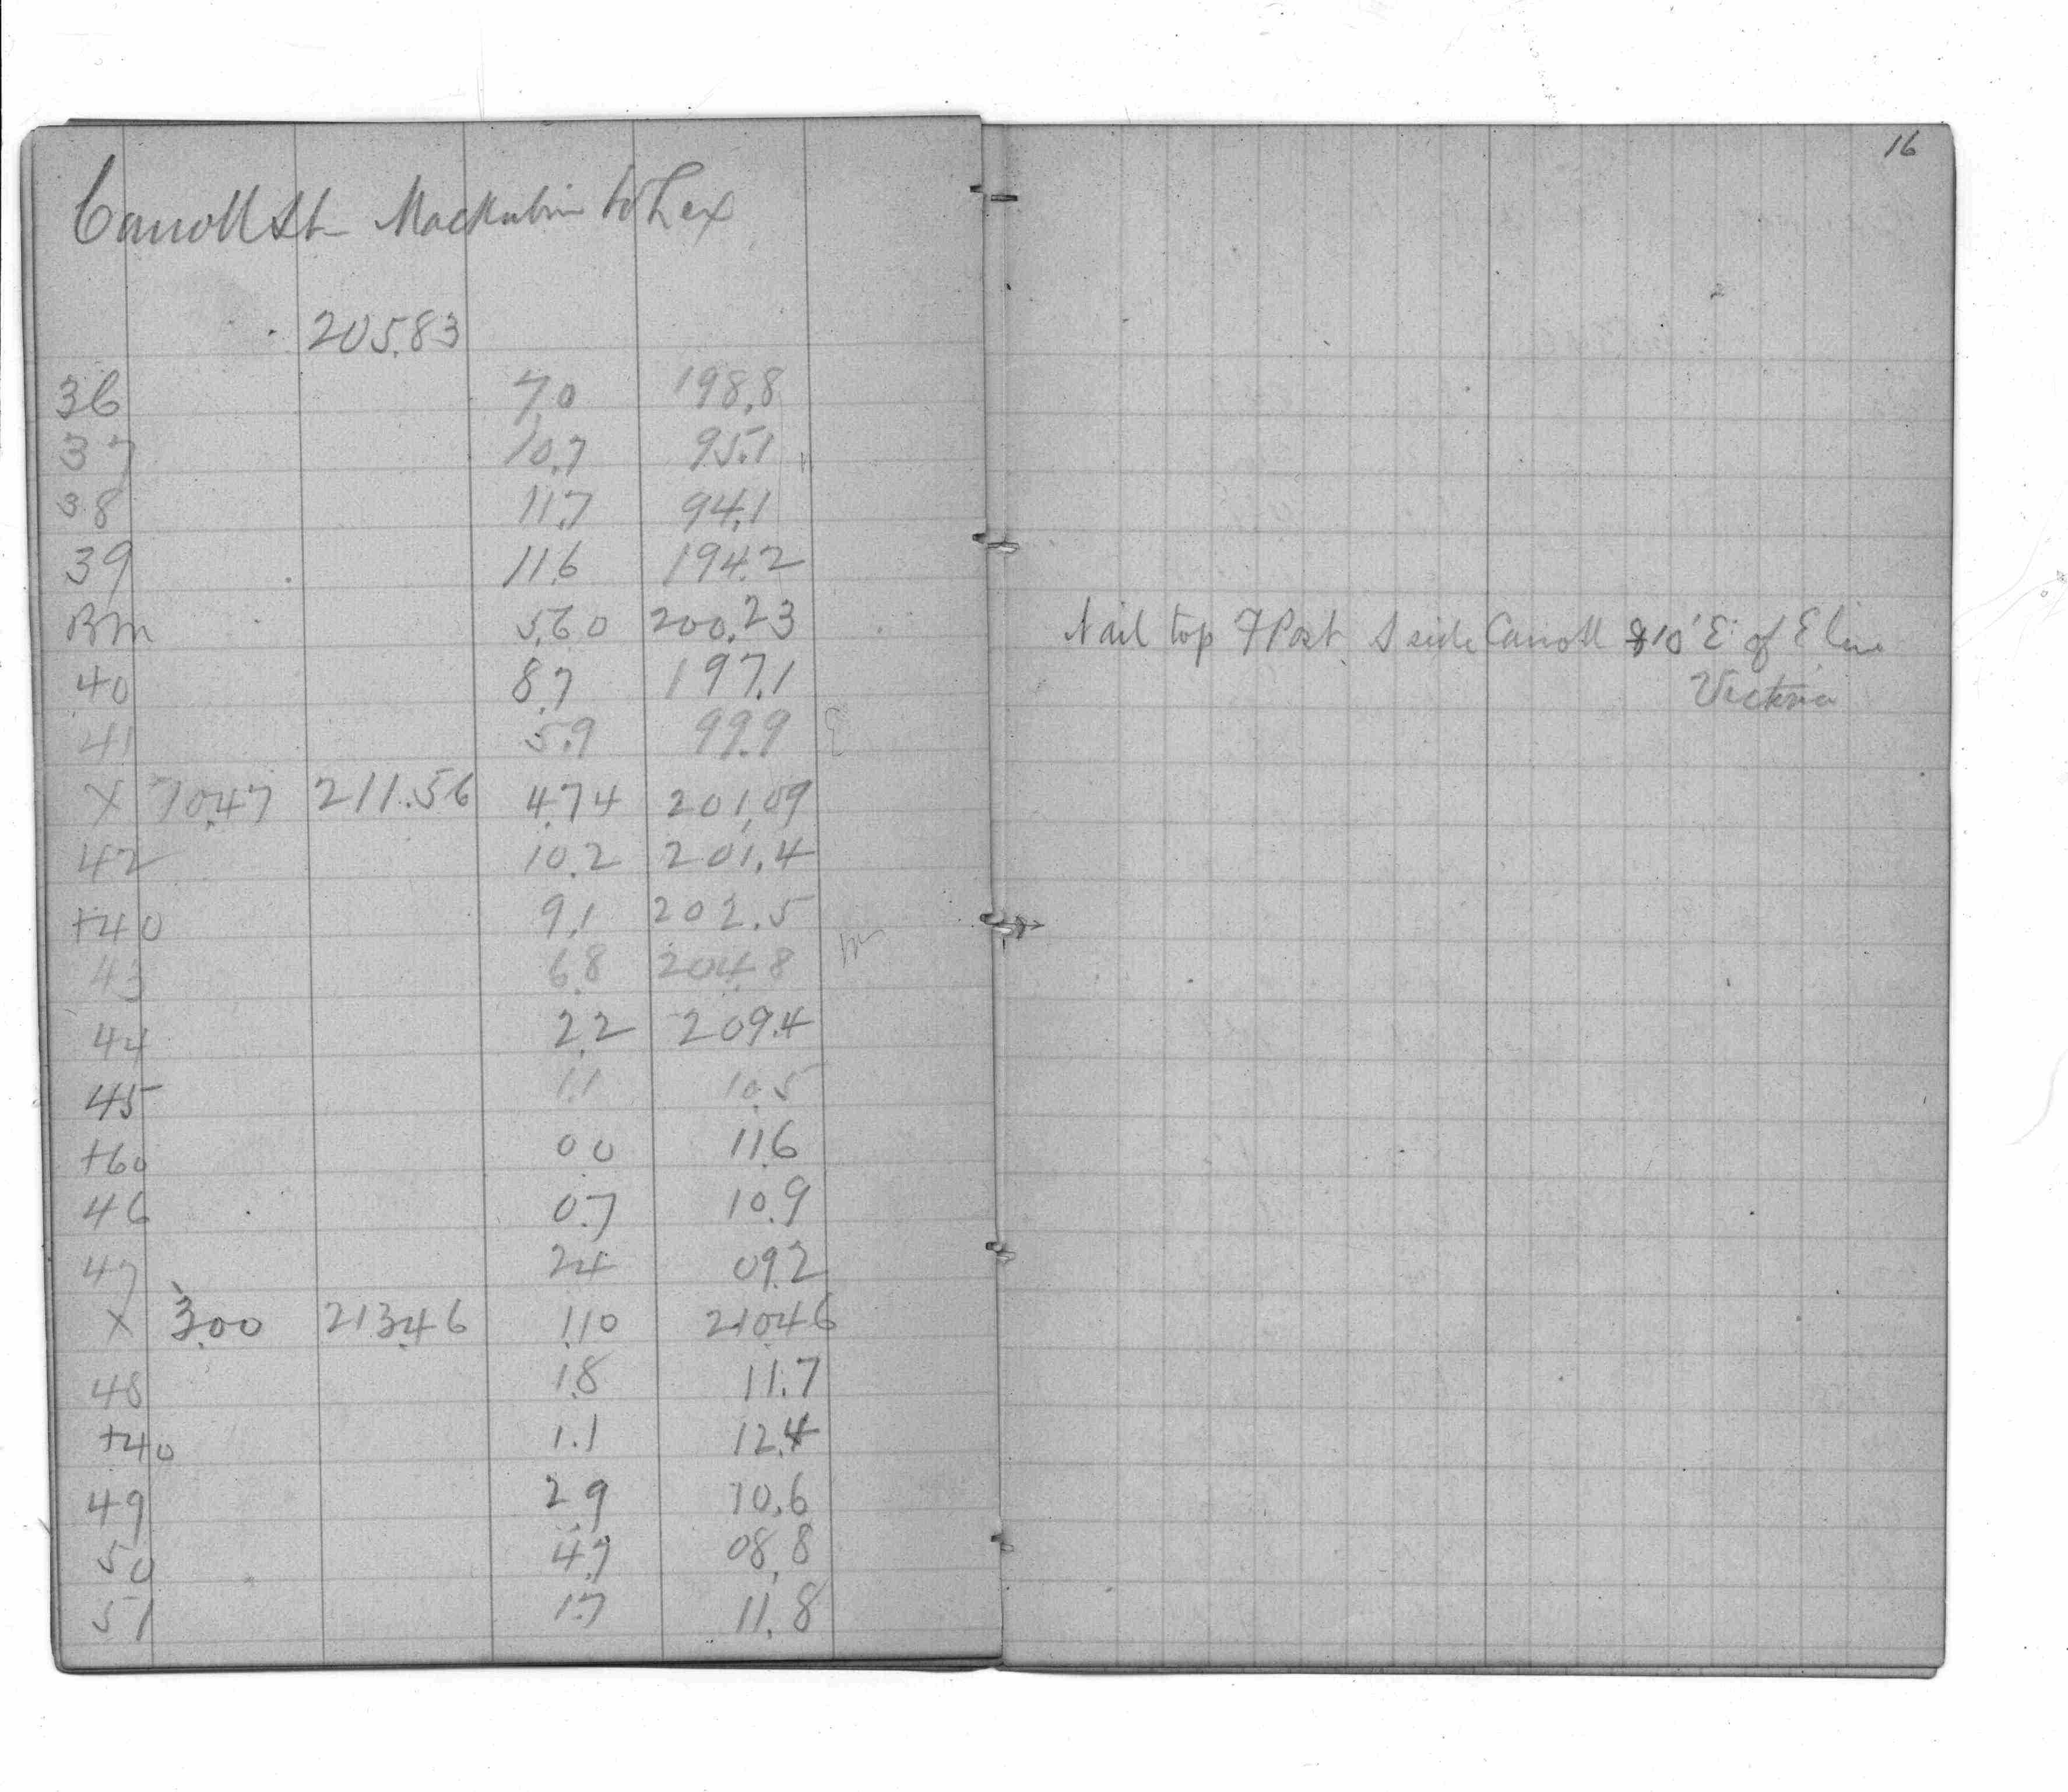 Carroll St - Mackubin to Lex
205.83
36 7.0 198.8
37 10.7 95.1
38 11.7 94.1
39 11.6 194.2
Bm 5.60 200.23
40 8.7 197.1
41 5.9 99.9
X 10.47 211.56 4.74 201.09
42 10.2 201.4
+40 9.1 202.5
43 6.8 204.8
44 2.2 209.4
45 1.1 10.5
+60 0 0 11.6
46 0.7 10.9
47 2.4 09.2
X 3.00 213.46 1.10 210.46
48 1.8 11.7
+40 1.1 12.4
49 2.9 10.6
50 4.7 08.8
51 1.7 11.8
16
Nail top F Post S side Carroll 10' E. of E line
Victoria